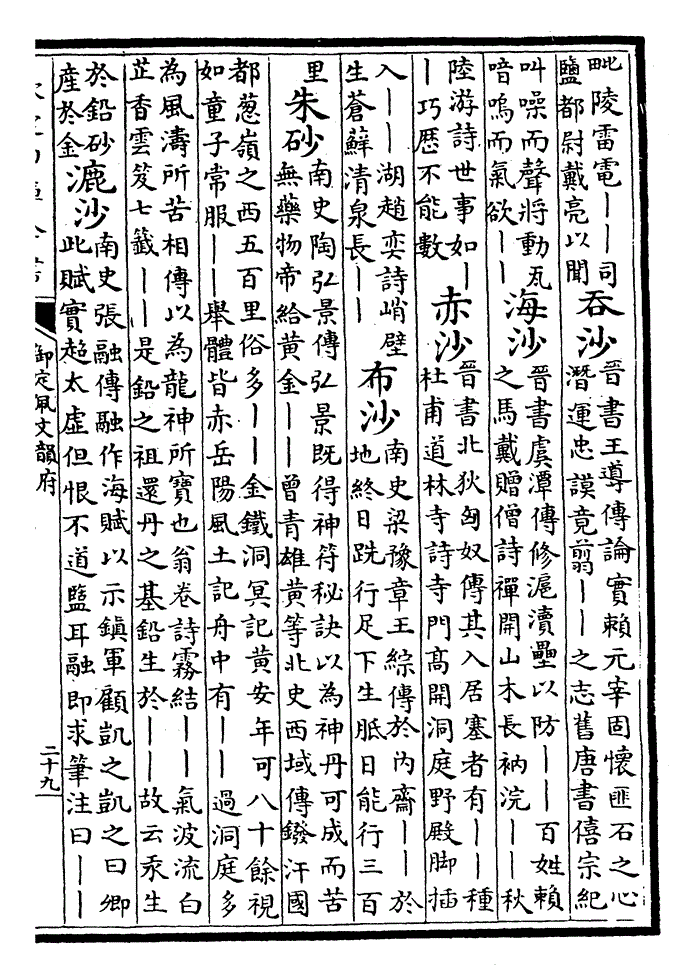 毗陵雷電——司
鹽都尉戴亮以聞
吞沙
晉書王導傳論實賴元宰固懷匪石之心
潛運忠謨竟翦——之志舊唐書僖宗紀
叫噪而聲將動瓦
喑嗚而氣欲——
海沙
晉書虞潭傳修滬瀆壘以防——百姓賴
之馬戴贈僧詩禪開山木長衲浣——秋
陸游詩世事如—
—巧歷不能數
赤沙
晉書北狄匈奴傳其入居塞者有——種
杜甫道林寺詩寺門高開洞庭野殿脚插
入——湖趙奕詩峭壁
生蒼蘚清泉長——
布沙
南史梁豫章王綜傳於內齋——於
地終日跣行足下生胝日能行三百
里
朱砂
南史陶弘景傳弘景既得神符秘訣以為神丹可成而苦
無藥物帝給黃金——曾青雄黃等北史西域傳鏺汗國
都葱嶺之西五百里俗多——金鐵洞冥記黃安年可八十餘視
如童子常服——舉體皆赤岳陽風土記舟中有——過洞庭多
為風濤所苦相傳以為龍神所寶也翁卷詩霧結——氣波流白
芷香雲笈七籤——是鉛之祖還丹之基鉛生於——故云汞生
於鉛砂
產於金
漉沙
南史張融傳融作海賦以示鎮軍顧凱之凱之曰卿
此賦實超太虛但恨不道鹽耳融即求筆注曰——
御定佩文韻府
二十九